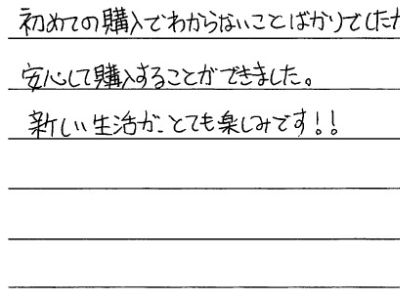 初めての購入でわからないことばかりでした
安心して購入することができました。
新しい生活が、とても楽しみです!!